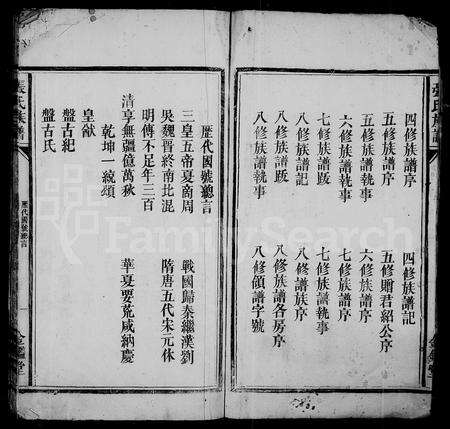 張氏族譜
四修族譜序
四修族譜記
五修族譜序
五修贈君紹公序
五修族譜執事
六修族譜序
六修族譜執事
七修族譜序
七修族譜跋
七修族譜執事
八修族譜記
八修譜族序
八修族譜跋
八修族譜各房序
八修族譜執事
八修領譜字號
張氏族譜
歷代國號總言
歷代國號總言
三皇五帝夏商周
戰國歸秦繼漢劉
吳魏晉終南北混
隋唐五代宋元休
明傳不足年三百
清享無疆億萬秋
華夏要荒咸納慶
乾坤一統頌
皇猷
盤古紀
盤古氏
FamilySearch